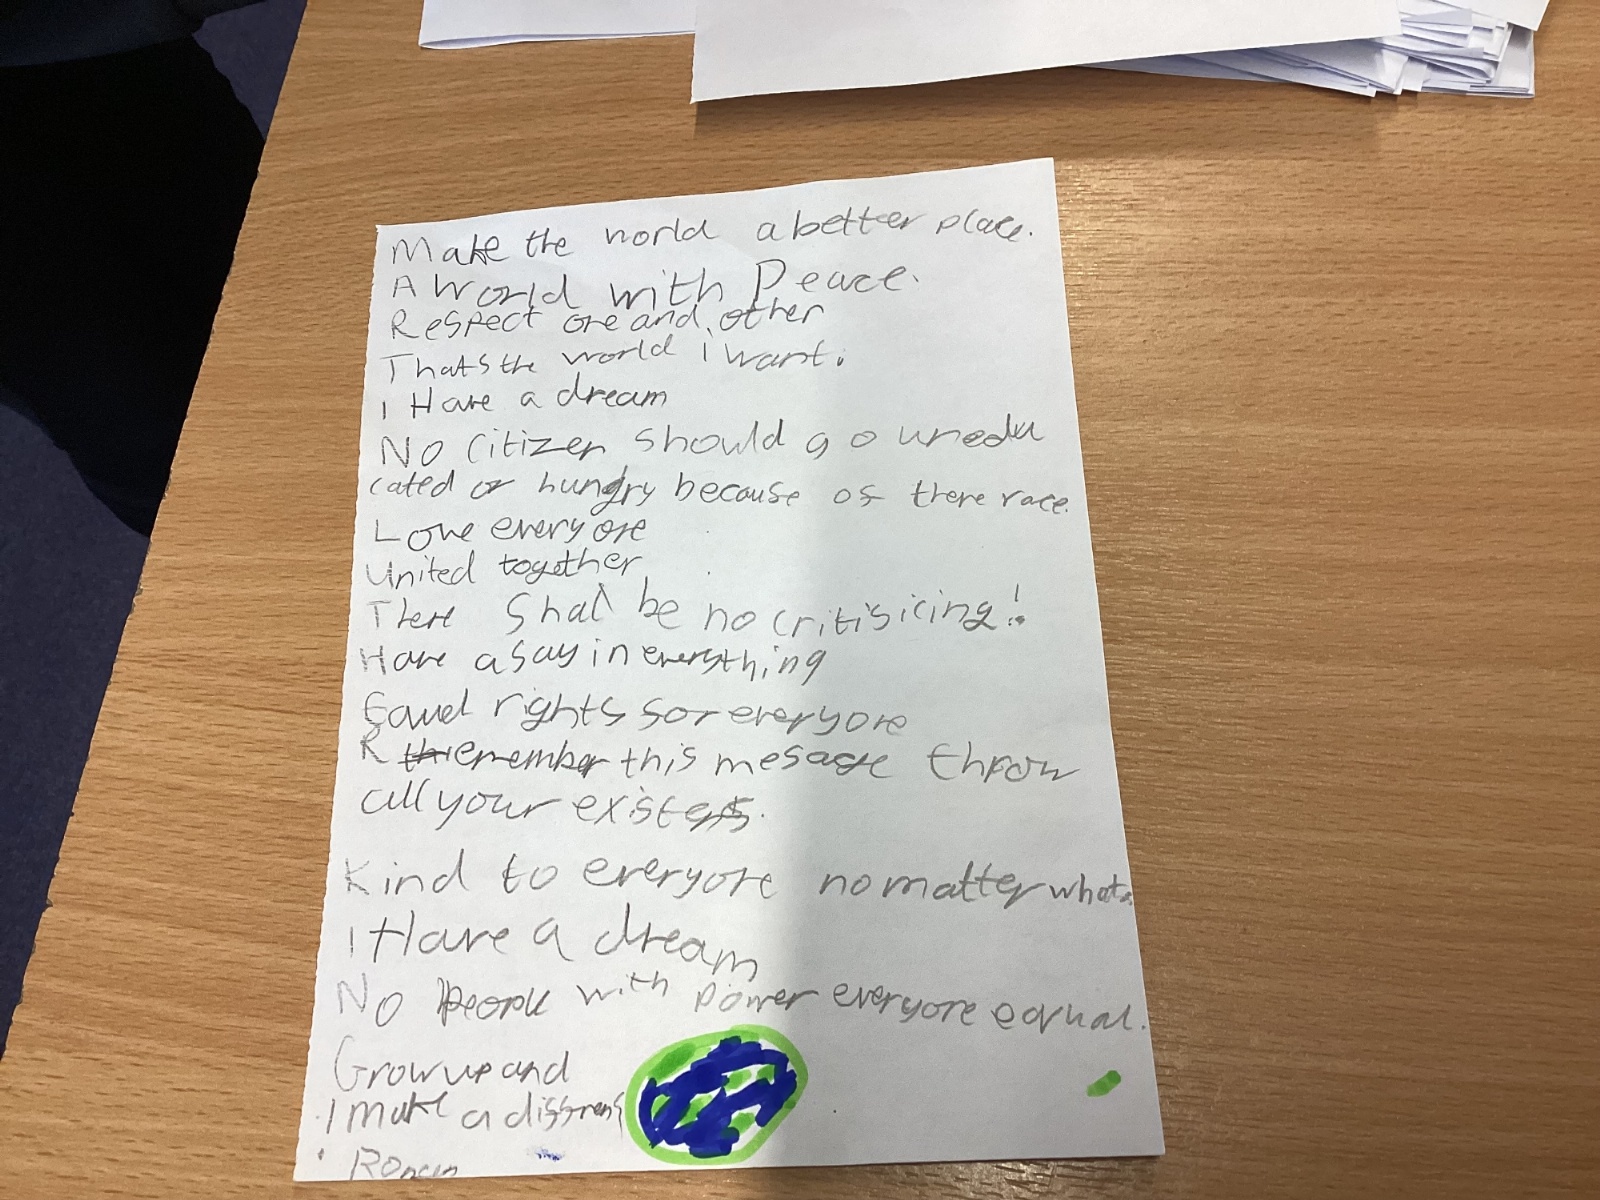 Make the world a better place.
A World with Peace.
Respect one and other
Thats the world i want.
I Have a dream
No Citizen should go unedu
cated or hungry because of there race.
Love everyone
United together
There Shal be no critisicing!
Have a say in everything
Equel rights for everyone
R emember this mesage throw
all your existens.
Kind to everyone no matter whats
I Have a dream
No People with power everyone equal.
Grow up and
I make a diffrens